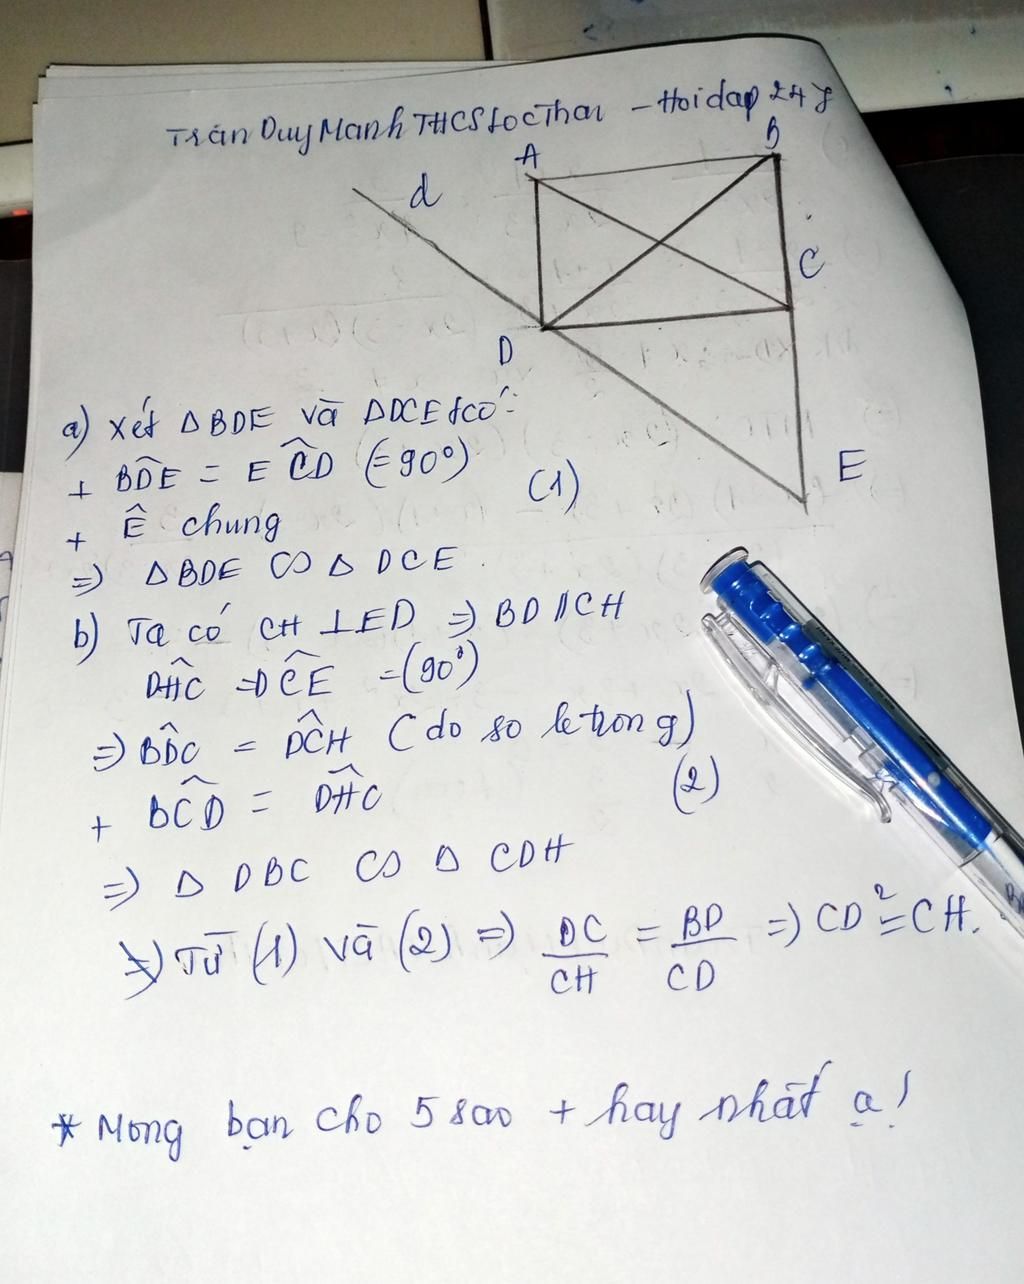 Trần Duy Mạnh THCS Lộc Thái - Hoidap 247
A
B
d
C
D
E
a) xét Δ BDE và ΔDCE có:
+ BD̂E = E ĈD (=90⁰)
(1)
+ Ê chung
=> Δ BDE ∽ Δ DCE
b) Ta có CH ⊥ ED => BD // CH
DĤC = DĈE =(90⁰)
=> BD̂C = DĈH (do so le trong)
+ BĈD = DĤC
(2)
=> Δ DBC ∽ Δ CDH
=> Từ (1) và (2) => DC/CH = BD/CD => CD² = CH.
* Mong bạn cho 5 sao + hay nhất ạ!